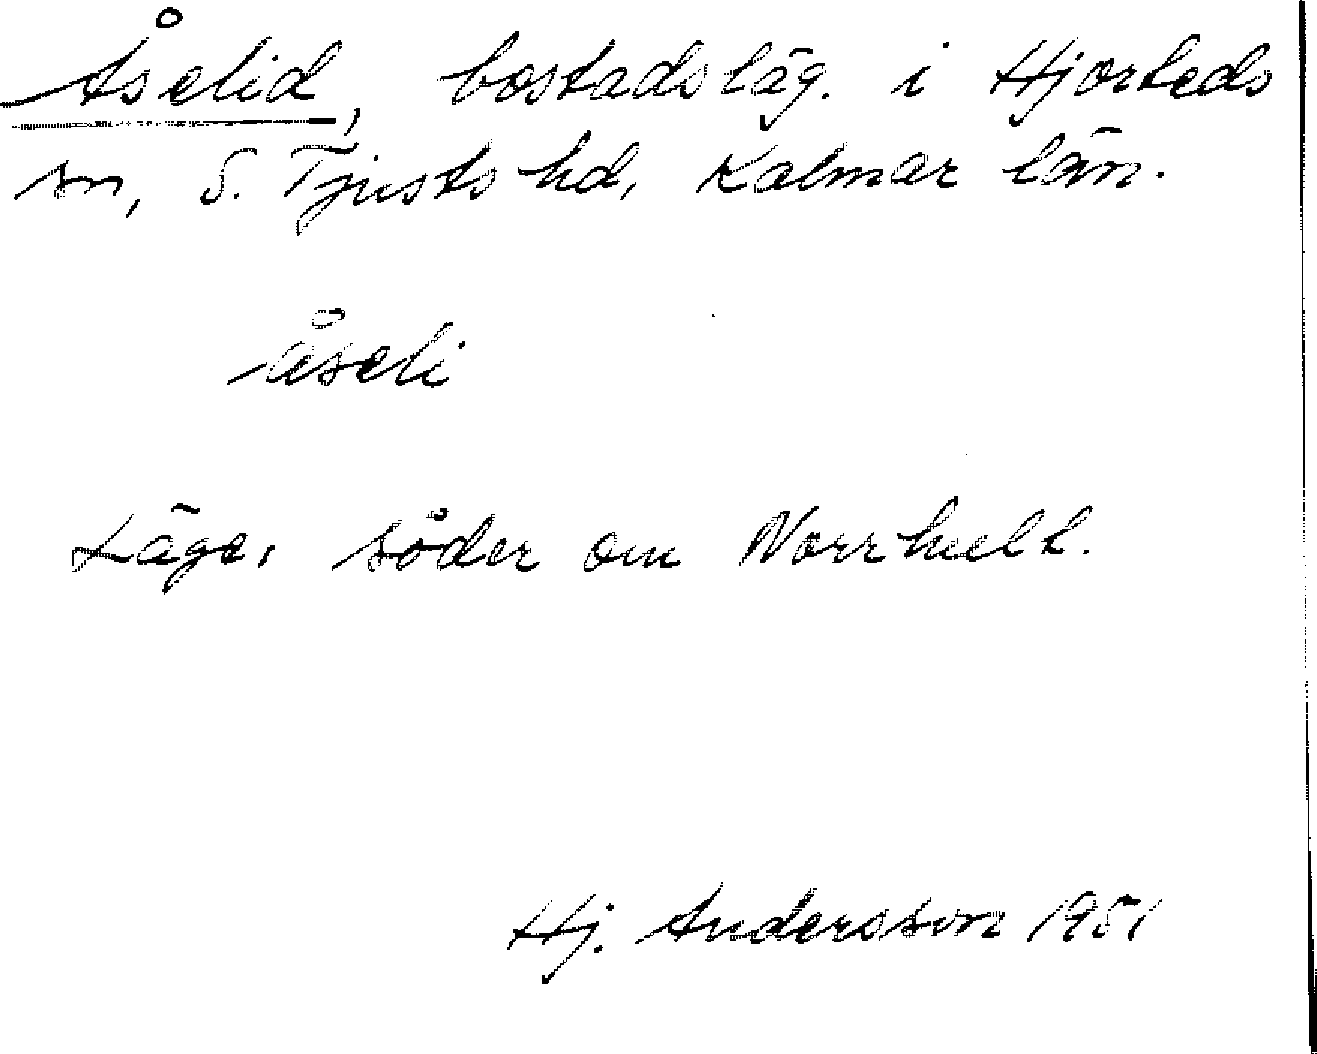 Åselid, bostadsläg. i Hjorteds
sn, S. Tjusts hd, Kalmar län.
åseli
Läge, söder om Norrhult.
Hj. Andersson 1951